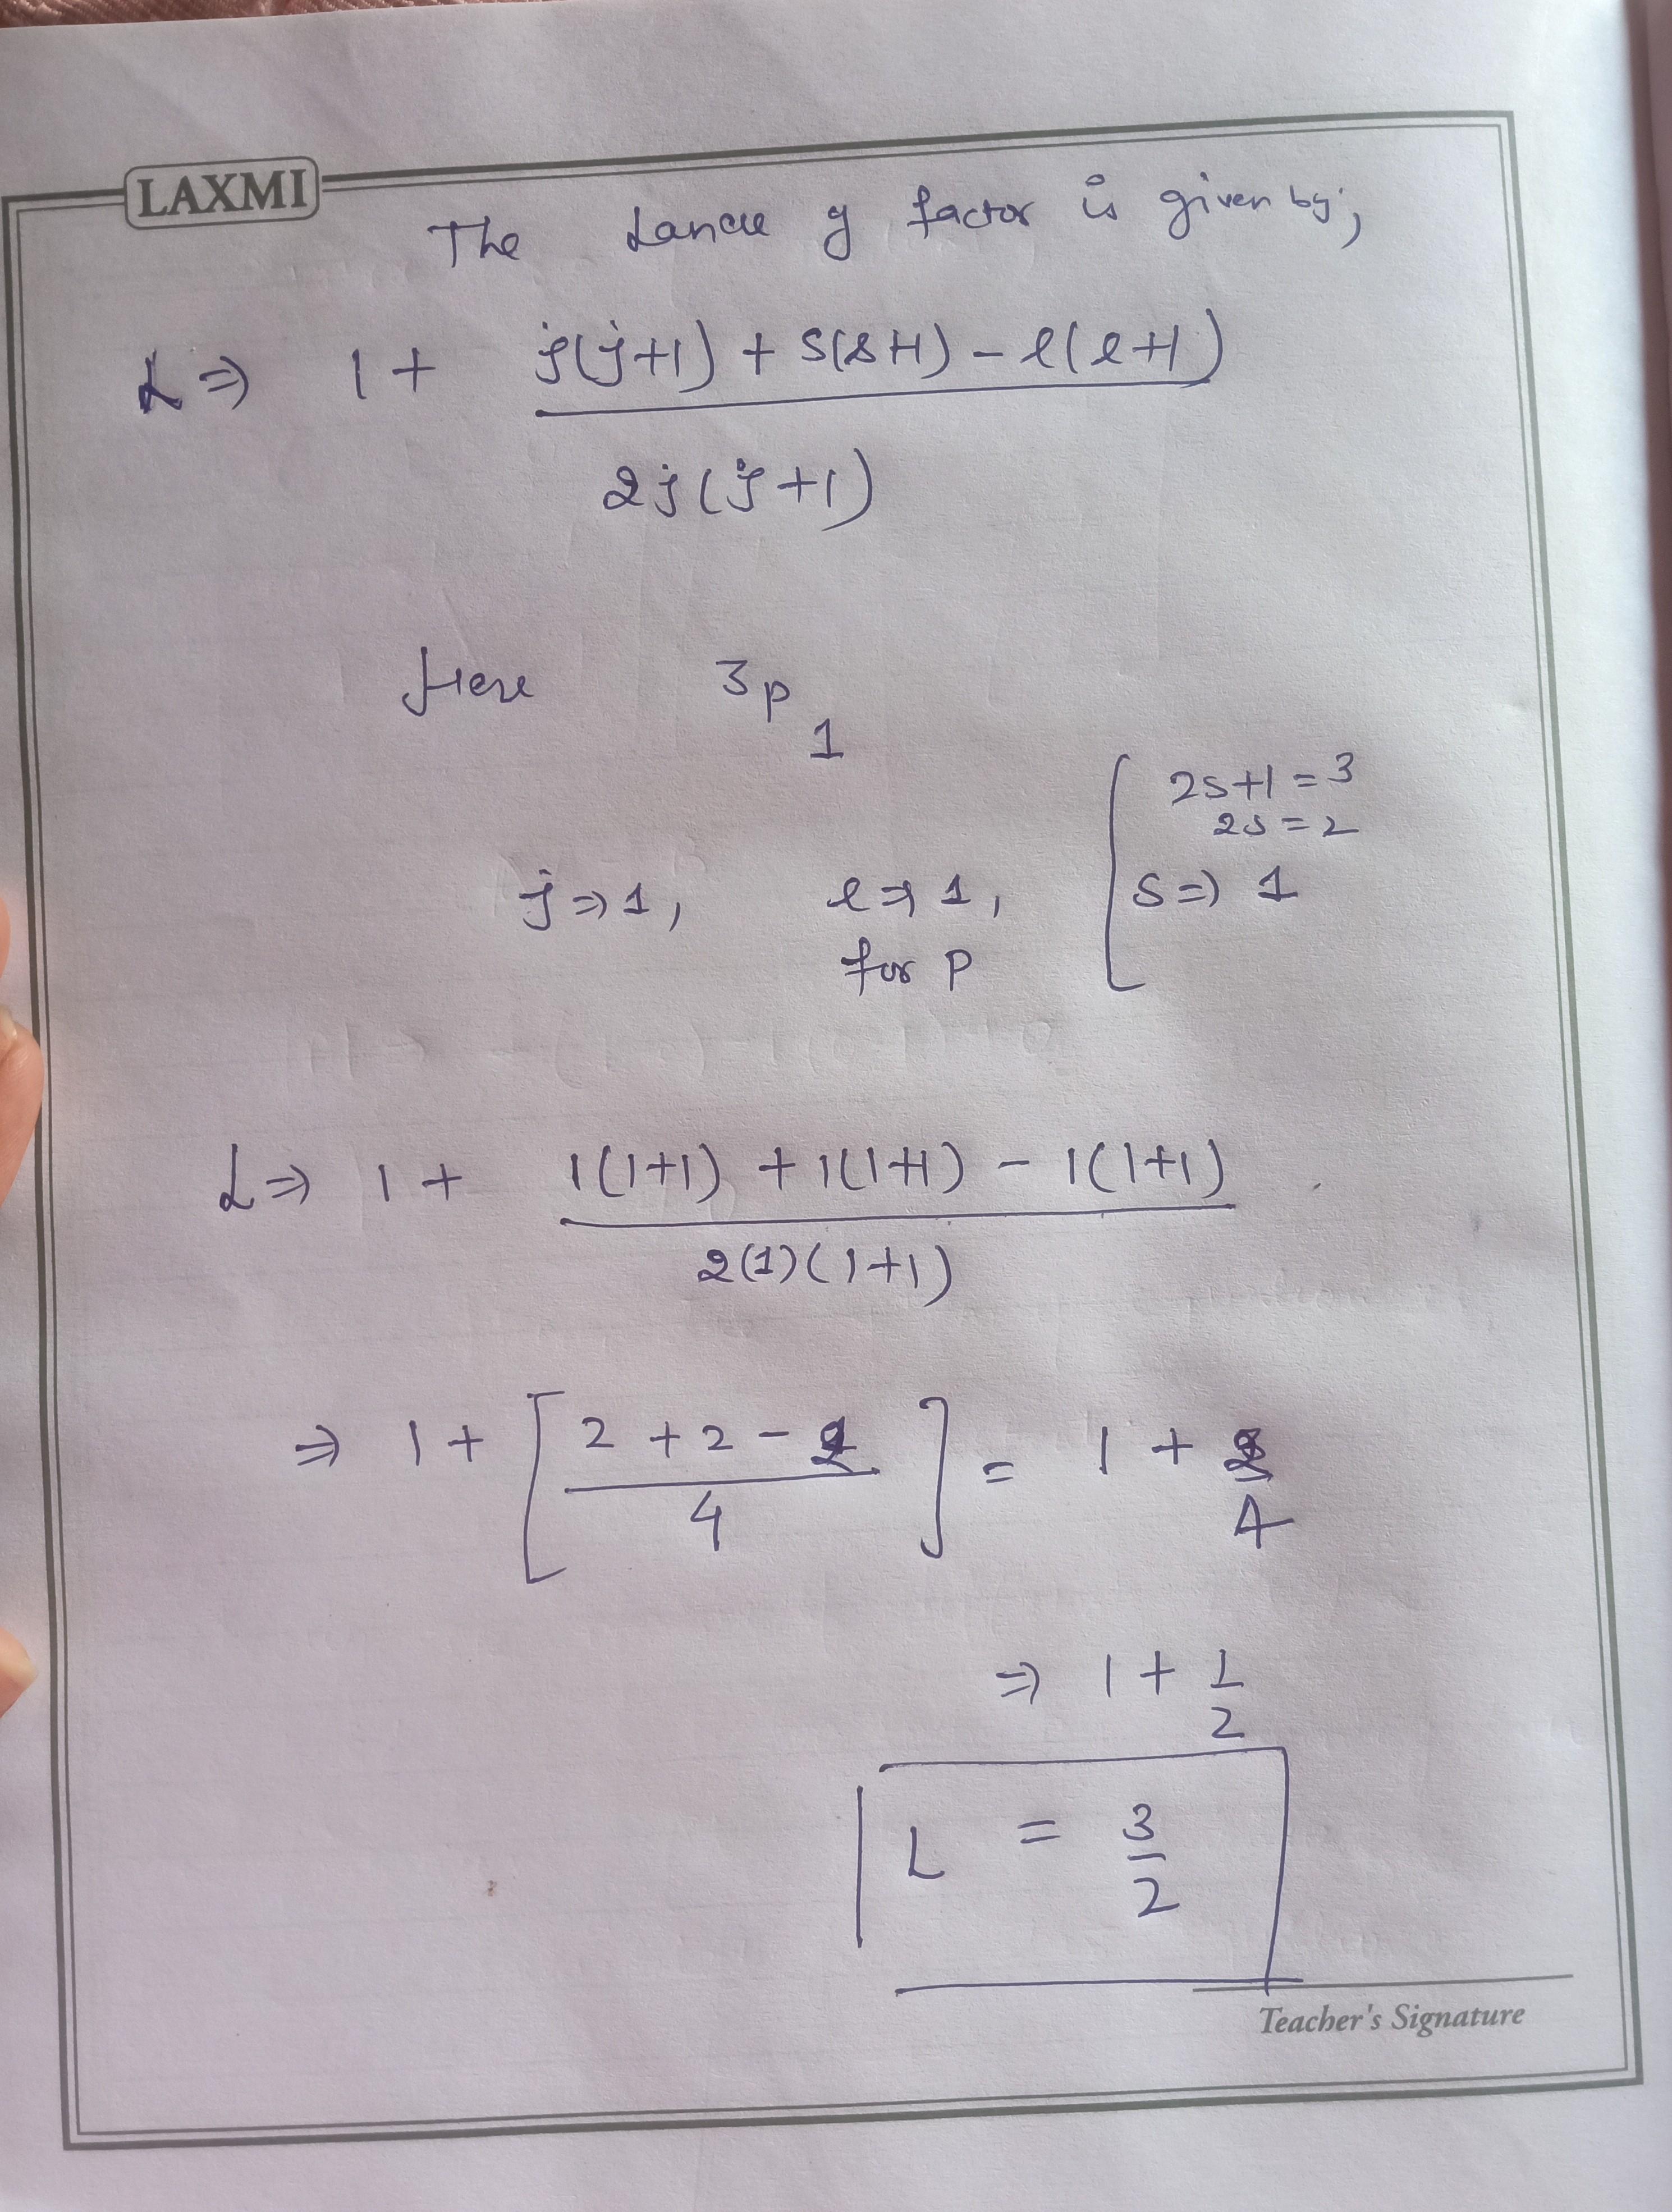 LAXMI
The Lande g factor is given by;
L ⇒ 1 + j(j+1) + s(s+1) - l(l+1)
2j(j+1)
Here 3p1
2s+1 = 3
2s = 2
j ⇒ 1, l ⇒ 1, s ⇒ 1
for p
L ⇒ 1 + 1(1+1) + 1(1+1) - 1(1+1)
2(1)(1+1)
⇒ 1 + [2 + 2 - 2 / 4] = 1 + 2/4
⇒ 1 + 1/2
L = 3/2
Teacher's Signature